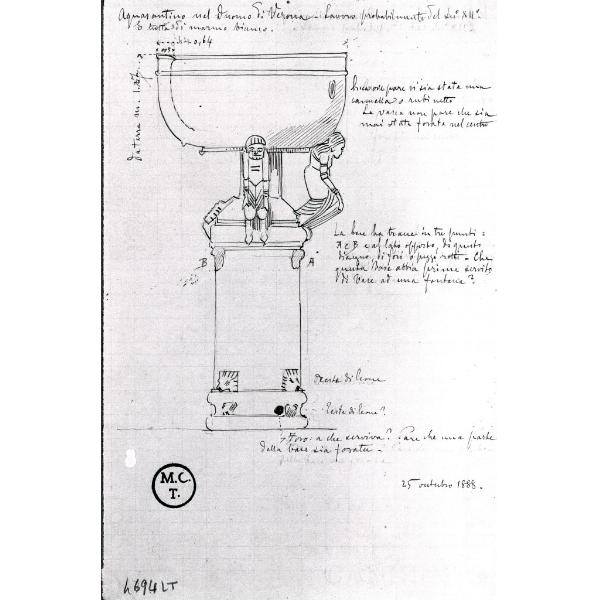 Aquasantino nel Duomo di Verona - Lavoro probabilmente del Sec.° XII°.
È tutta di marmo bianco.
0,64
da terra m. 1.
pare vi sia stata una
cannella o rubinetto
La vasca non pare che sia
mai stata forata nel centro
La base ha tracce in tre punti:
A e B e al lato opposto, di questo
disegno, di fori o pezzi rotti - Che
questa base abbia prima servito
di base ad una fontana?
B
A
testa di leone
testa di leone?
Foro: a che serviva? Pare che una parte
della base sia forata -
25 ottobre 1888.
M.C.
T.
4694 LT